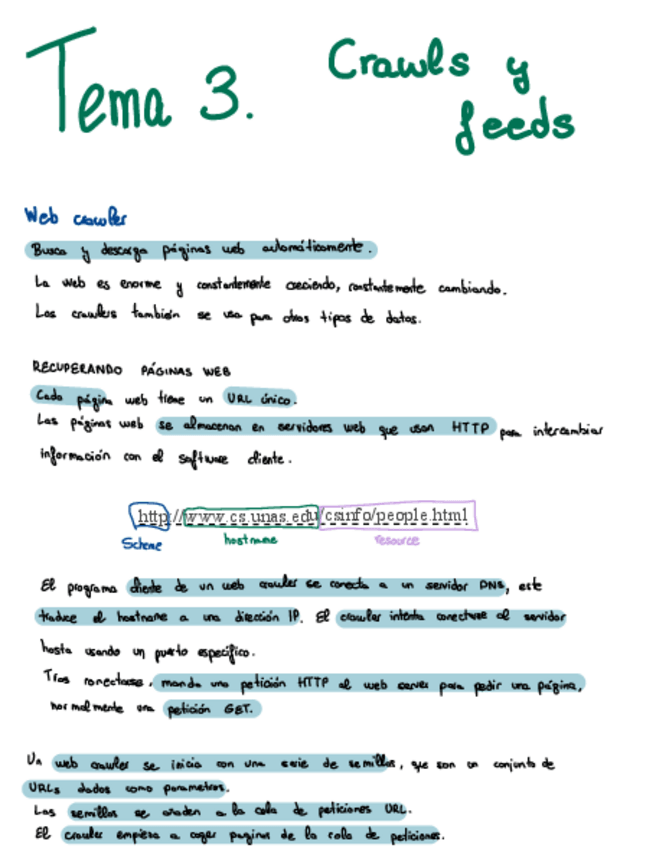 Tema 3. Crawls y
feeds
Web crawler
Busca y descarga páginas web automáticamente.
La web es enorme y constantemente creciendo, constantemente cambiando.
Los crawlers también se usa para otros tipos de datos.
RECUPERANDO PÁGINAS WEB
Cada página web tiene un URL único.
Las páginas web se almacenan en servidores web que usan HTTP para intercambiar
información con el software cliente.
http://www.cs.unas.edu/csinfo/people.html
Scheme hostname resource
El programa cliente de un web crawler se conecta a un servidor DNS, este
traduce el hostname a una dirección IP. El crawler intenta conectarse al servidor
hosta usando un puerto específico.
Tras conectarse, manda una petición HTTP al web server para pedir una página,
normalmente una petición GET.
Un web crawler se inicia con una serie de semillas, que son un conjunto de
URLs dados como parametros.
Las semillas se añaden a la cola de peticiones URL.
El crawler empieza a coger paginas de la cola de peticiones.